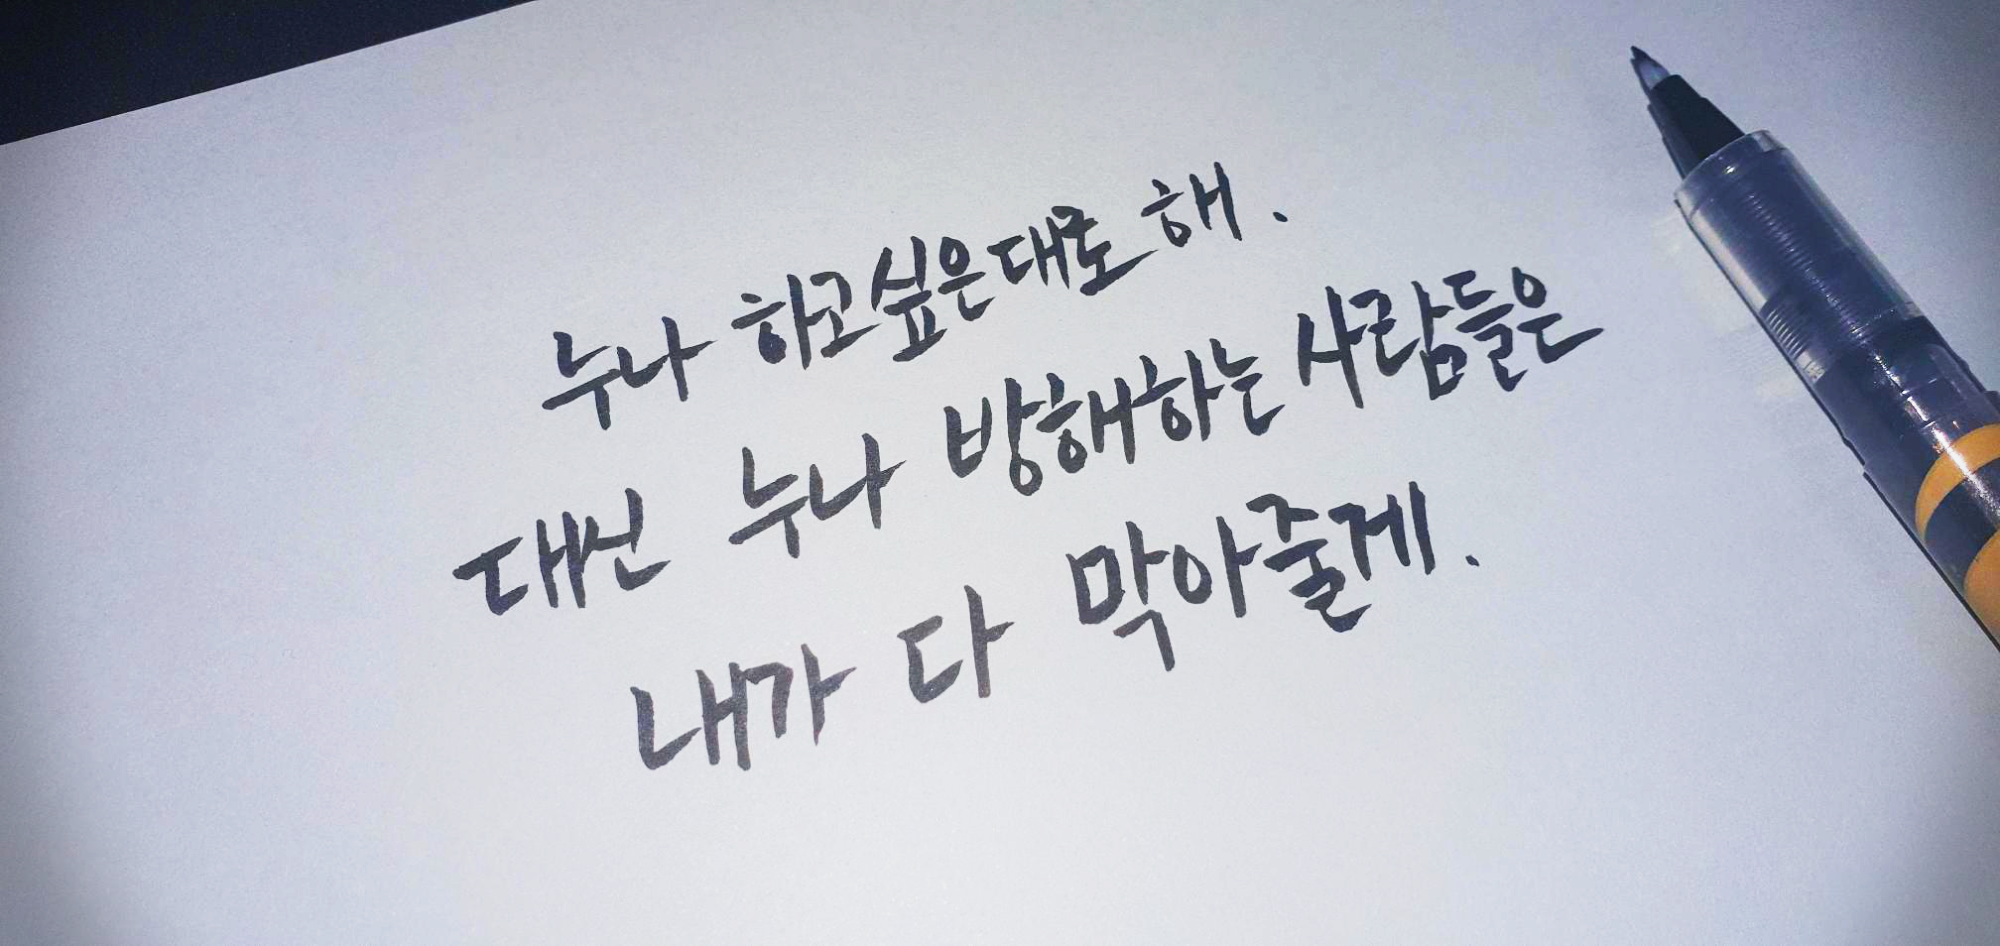 누나 하고싶은대로 해.
대신 누나 방해하는 사람들은
내가 다 막아줄게.